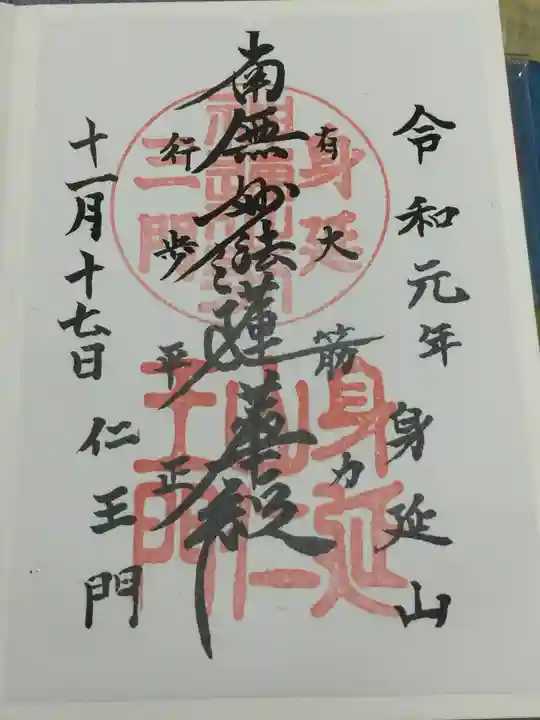 令和元年 身延山
有大筋力
南無妙法蓮華経
行歩平正
十一月十七日 仁王門
身延
三門
身延
山仁
王門